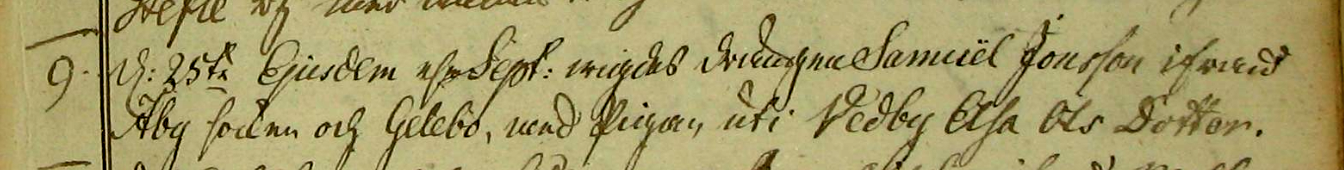 9. d: 25te Ejusdem Sept: wigdes drängen Samuël Jonsson ifrån
Åby socken och Gelebo, med Pigan uti Vedby Elsa Ols Dotter.